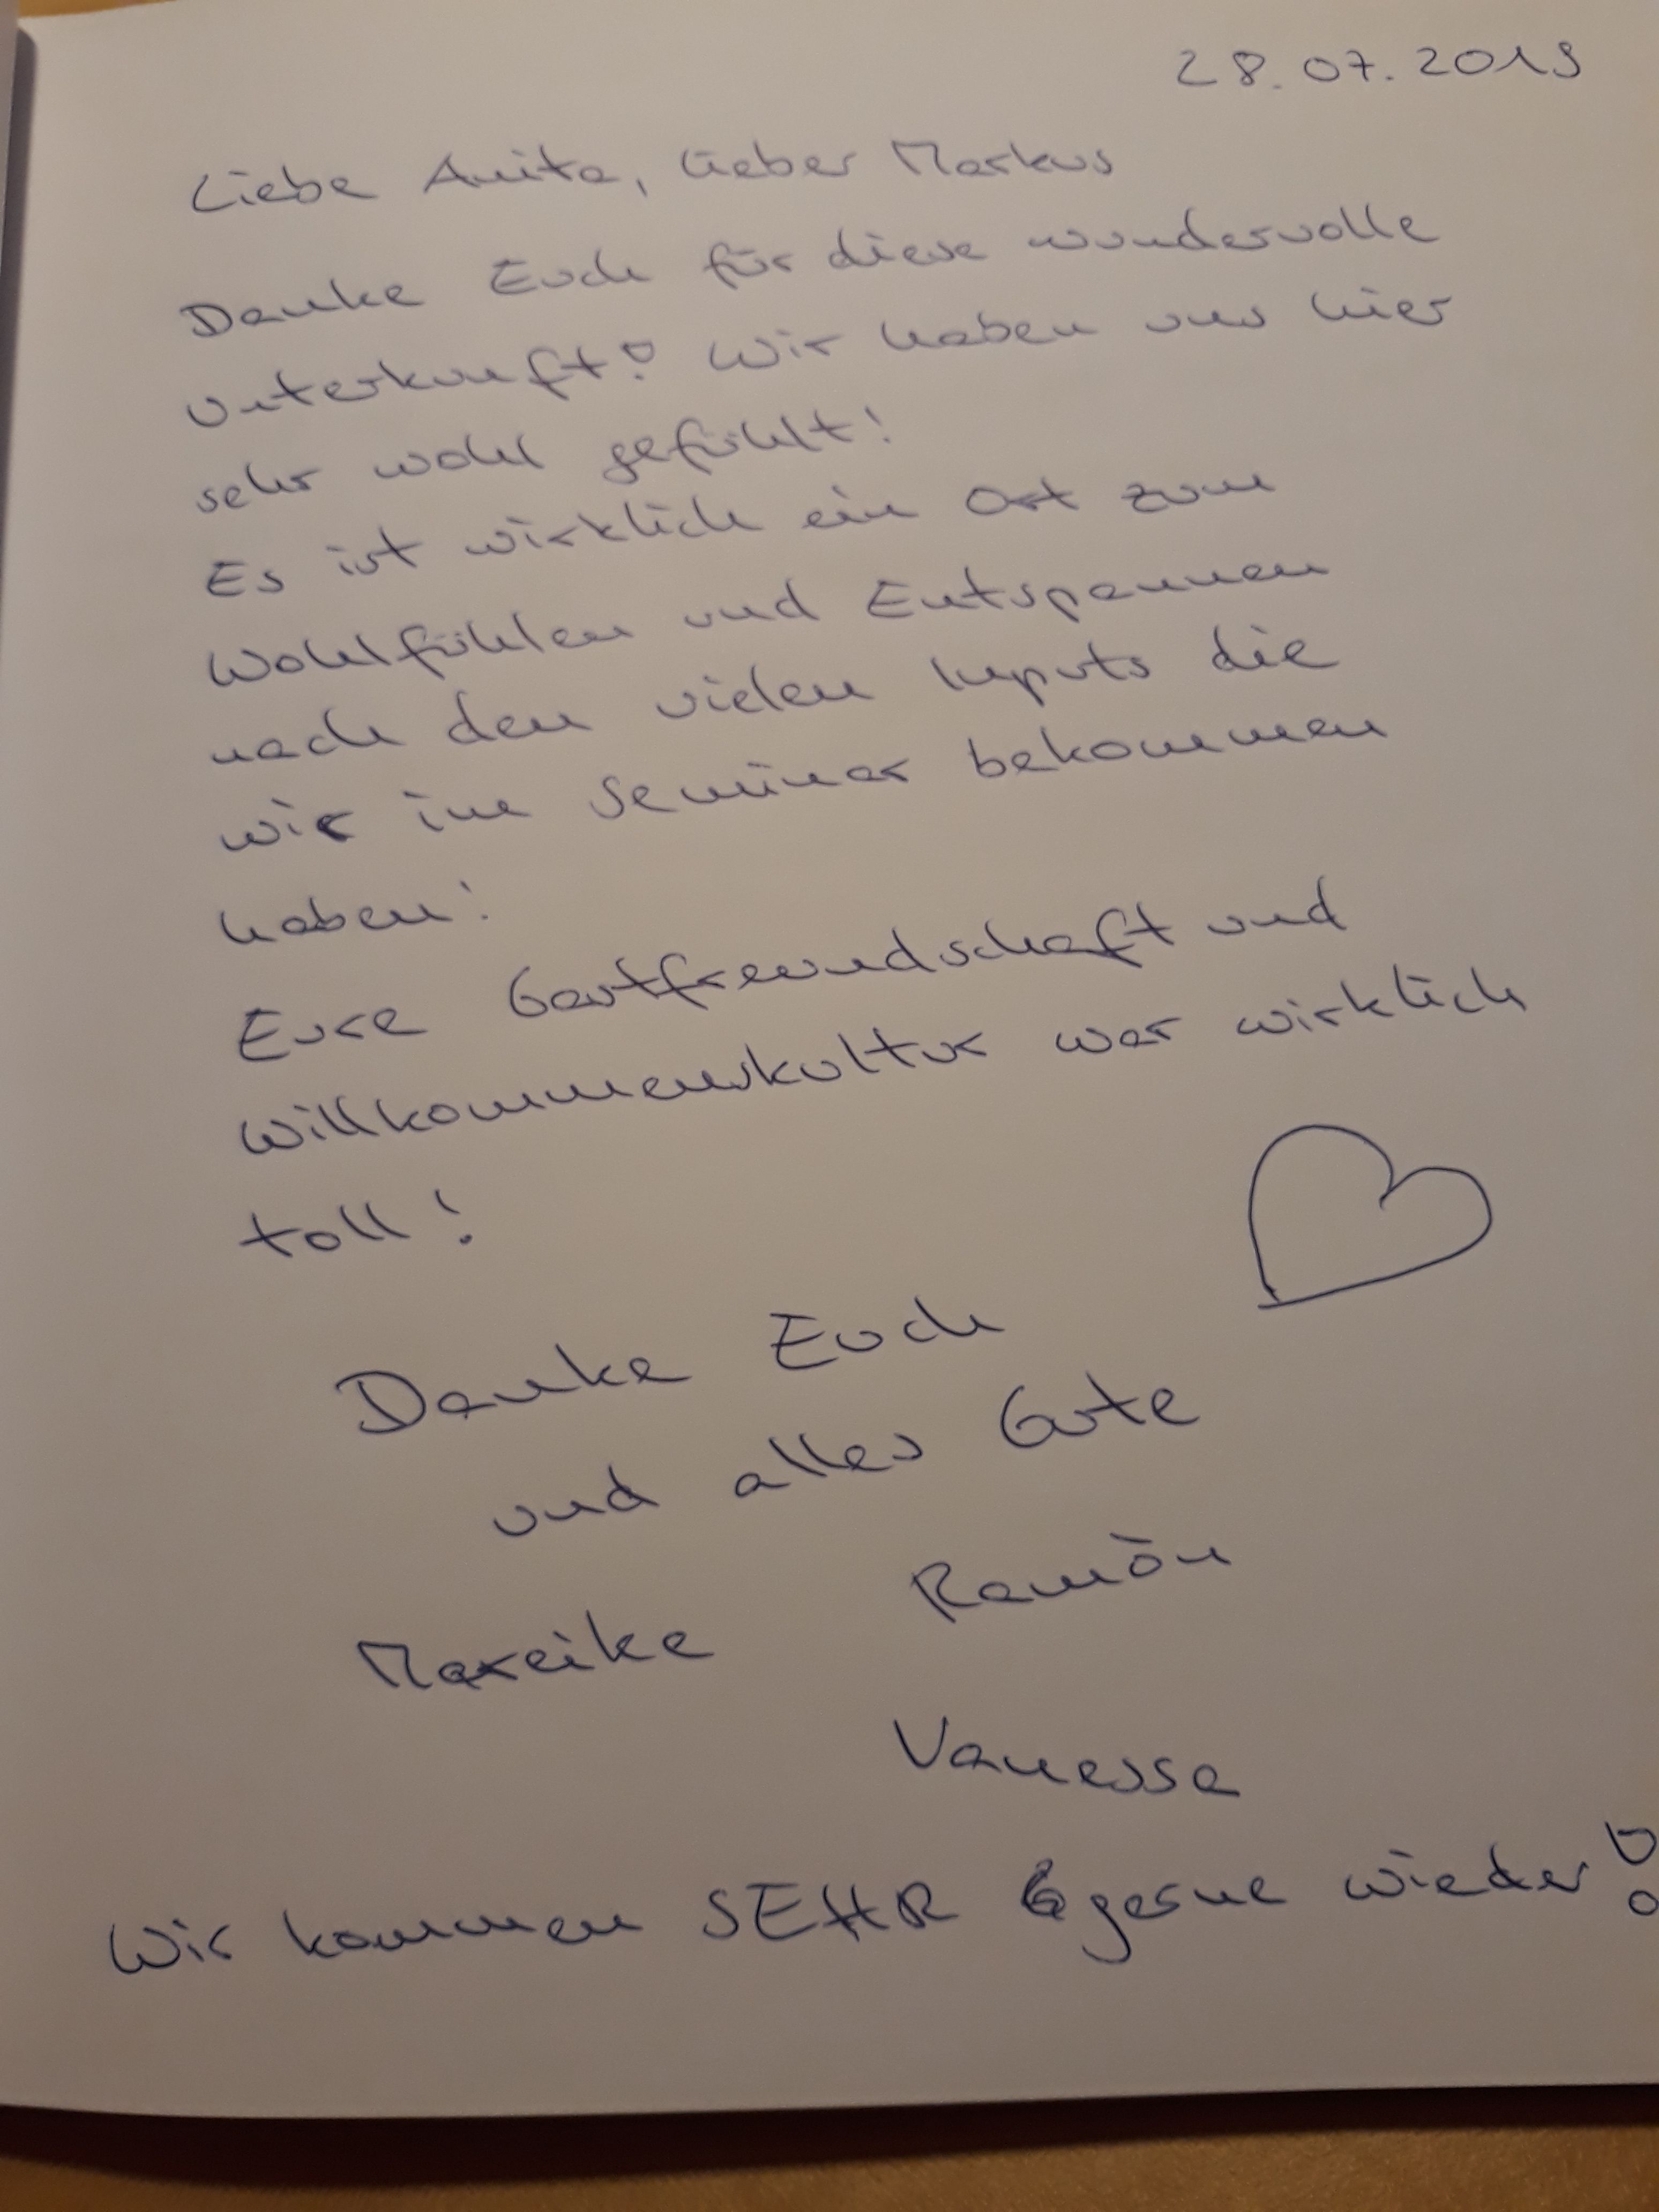 28.07.2019
Liebe Anita, lieber Markus
Danke Euch für diese wundervolle
Unterkunft! Wir haben uns hier
sehr wohl gefühlt!
Es ist wirklich ein Ort zum
Wohlfühlen und Entspannen
nach den vielen Inputs die
wir im Seminar bekommen
haben!
Eure Gastfreundschaft und
Willkommenskultur war wirklich
toll!
Danke Euch
und alles Gute
Ramòn
Mareike
Vanessa
Wir kommen SEHR gerne wieder!